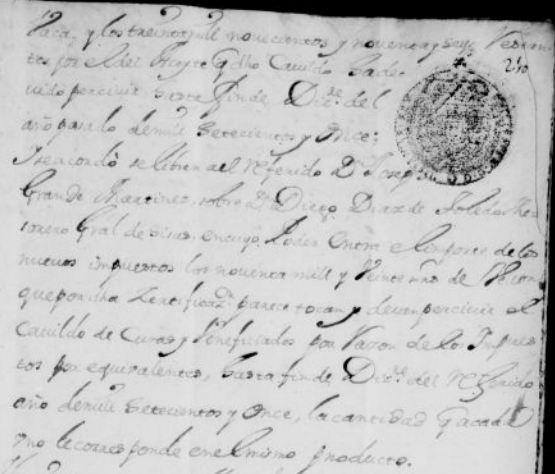 Vaca, y los treinta mill novecientos y noventa y seys Restan
tes por el del Azeyte q dho Cavildo ha de
vido percivir hasta fin de Diz.re del
año pasado de mill setecientos y once;
Se acordò se libren al referido D.n Joseph
Grande Martinez, sobre D.n Diego Diaz de Toledo The
sorero Gral de sisas, en cuyo Poder entra el importe de los
nuevos impuestos los noventa mill y veinte mrs de Vellon
que por dha Zertificaz.n parece tocan y devan percivir el
Cavildo de Curas y Veneficiados por Razon de los Impues
tos por equivalentes, hasta fin de Diz.re del referido
año de mill setecientos y once, la cantidad q a cada
vno le corresponde en el mismo producto.
240